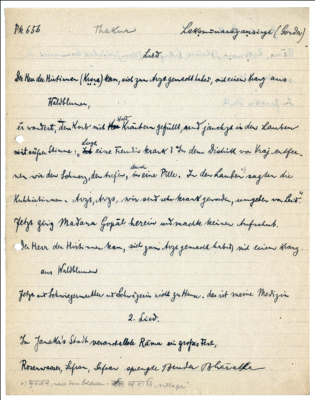 Ph 656 Thakur Laksminarayansingh (Gondu)
Lied.
Der Herr der Hirtinnen (Kṛṣṇa) kam, sich zum Arzt gemacht habend, mit einem Kranz aus
Waldblumen,
Er wandert, den Korb mit Kräutern gefüllt, und jauchzt in den Lauben
mit süßer Stimme: „ eine Freundin krank? In dem Distrikt von Vraj entfer-
nen wir den Schmerz, durch eine Pille. In der Laube“ sagten die
Kuhhirtinnen. Arzt, Arzt, wir sind sehr krank geworden, umgeben von Leid“
Jetzt ging Madana Gopāl herein und machte keinen Aufenthalt.
Der Herr der Hirtinnen kam, sich zum Arzt gemacht habend, mit einem Kranz
aus Waldblumen
Jetzt sind Schwiegermutter und Schwägerin nicht zu Hause. das ist meine Medizin
2. Lied.
In Janakis Stadt veranstaltete Rāma ein großes Fest,
Rosenwasser, Safran, Safran sprengte
village“